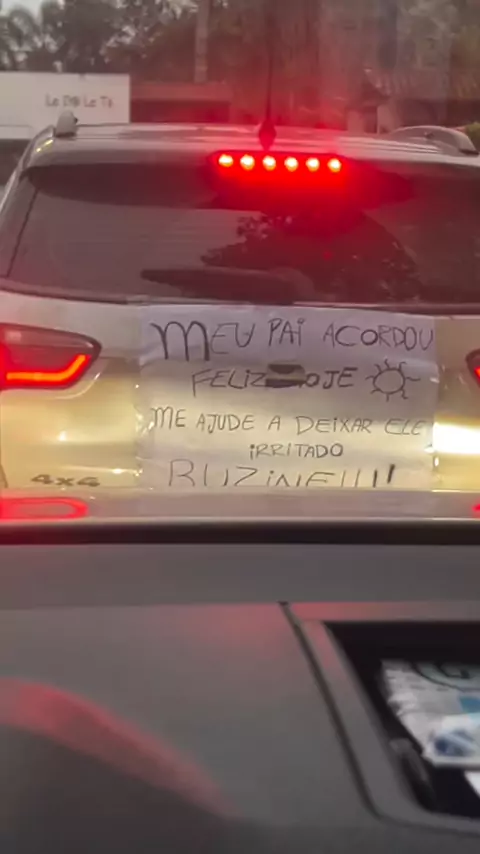 Le Dô Le Tê
MEU PAI ACORDOU
FELIZ HOJE
ME AJUDE A DEIXAR ELE
IRRITADO
BUZINE!!!!
4x4